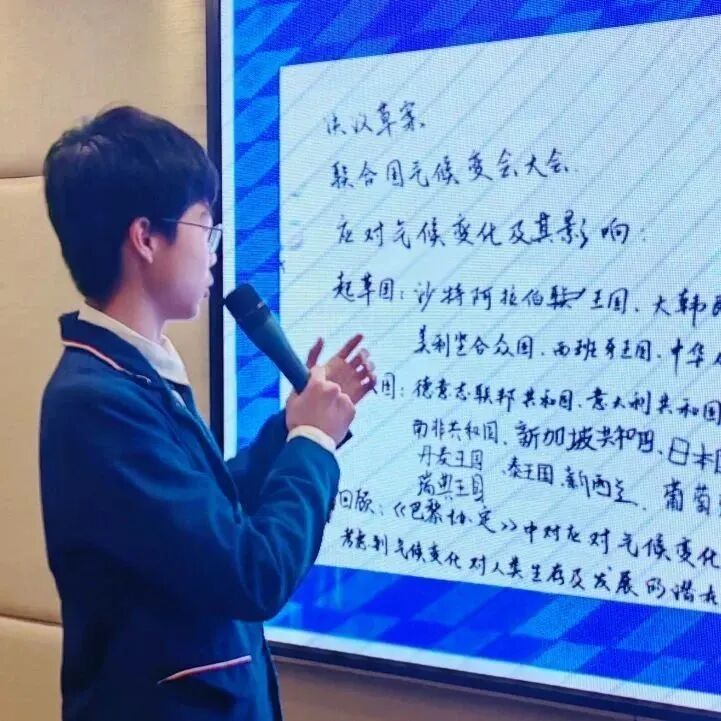 决议草案
联合国气候变会大会.
应对气候变化及其影响:
起草国: 沙特阿拉伯 王国、大韩
美利坚合众国、西班牙王国、中华
国: 德意志联邦共和国、意大利共和国
南非共和国、新加坡共和国、日本
丹麦王国、泰王国、新西兰、葡萄
瑞典王国
回顾:《巴黎协定》中对应对气候变化
考虑到气候变化对人类生存及发展的潜在